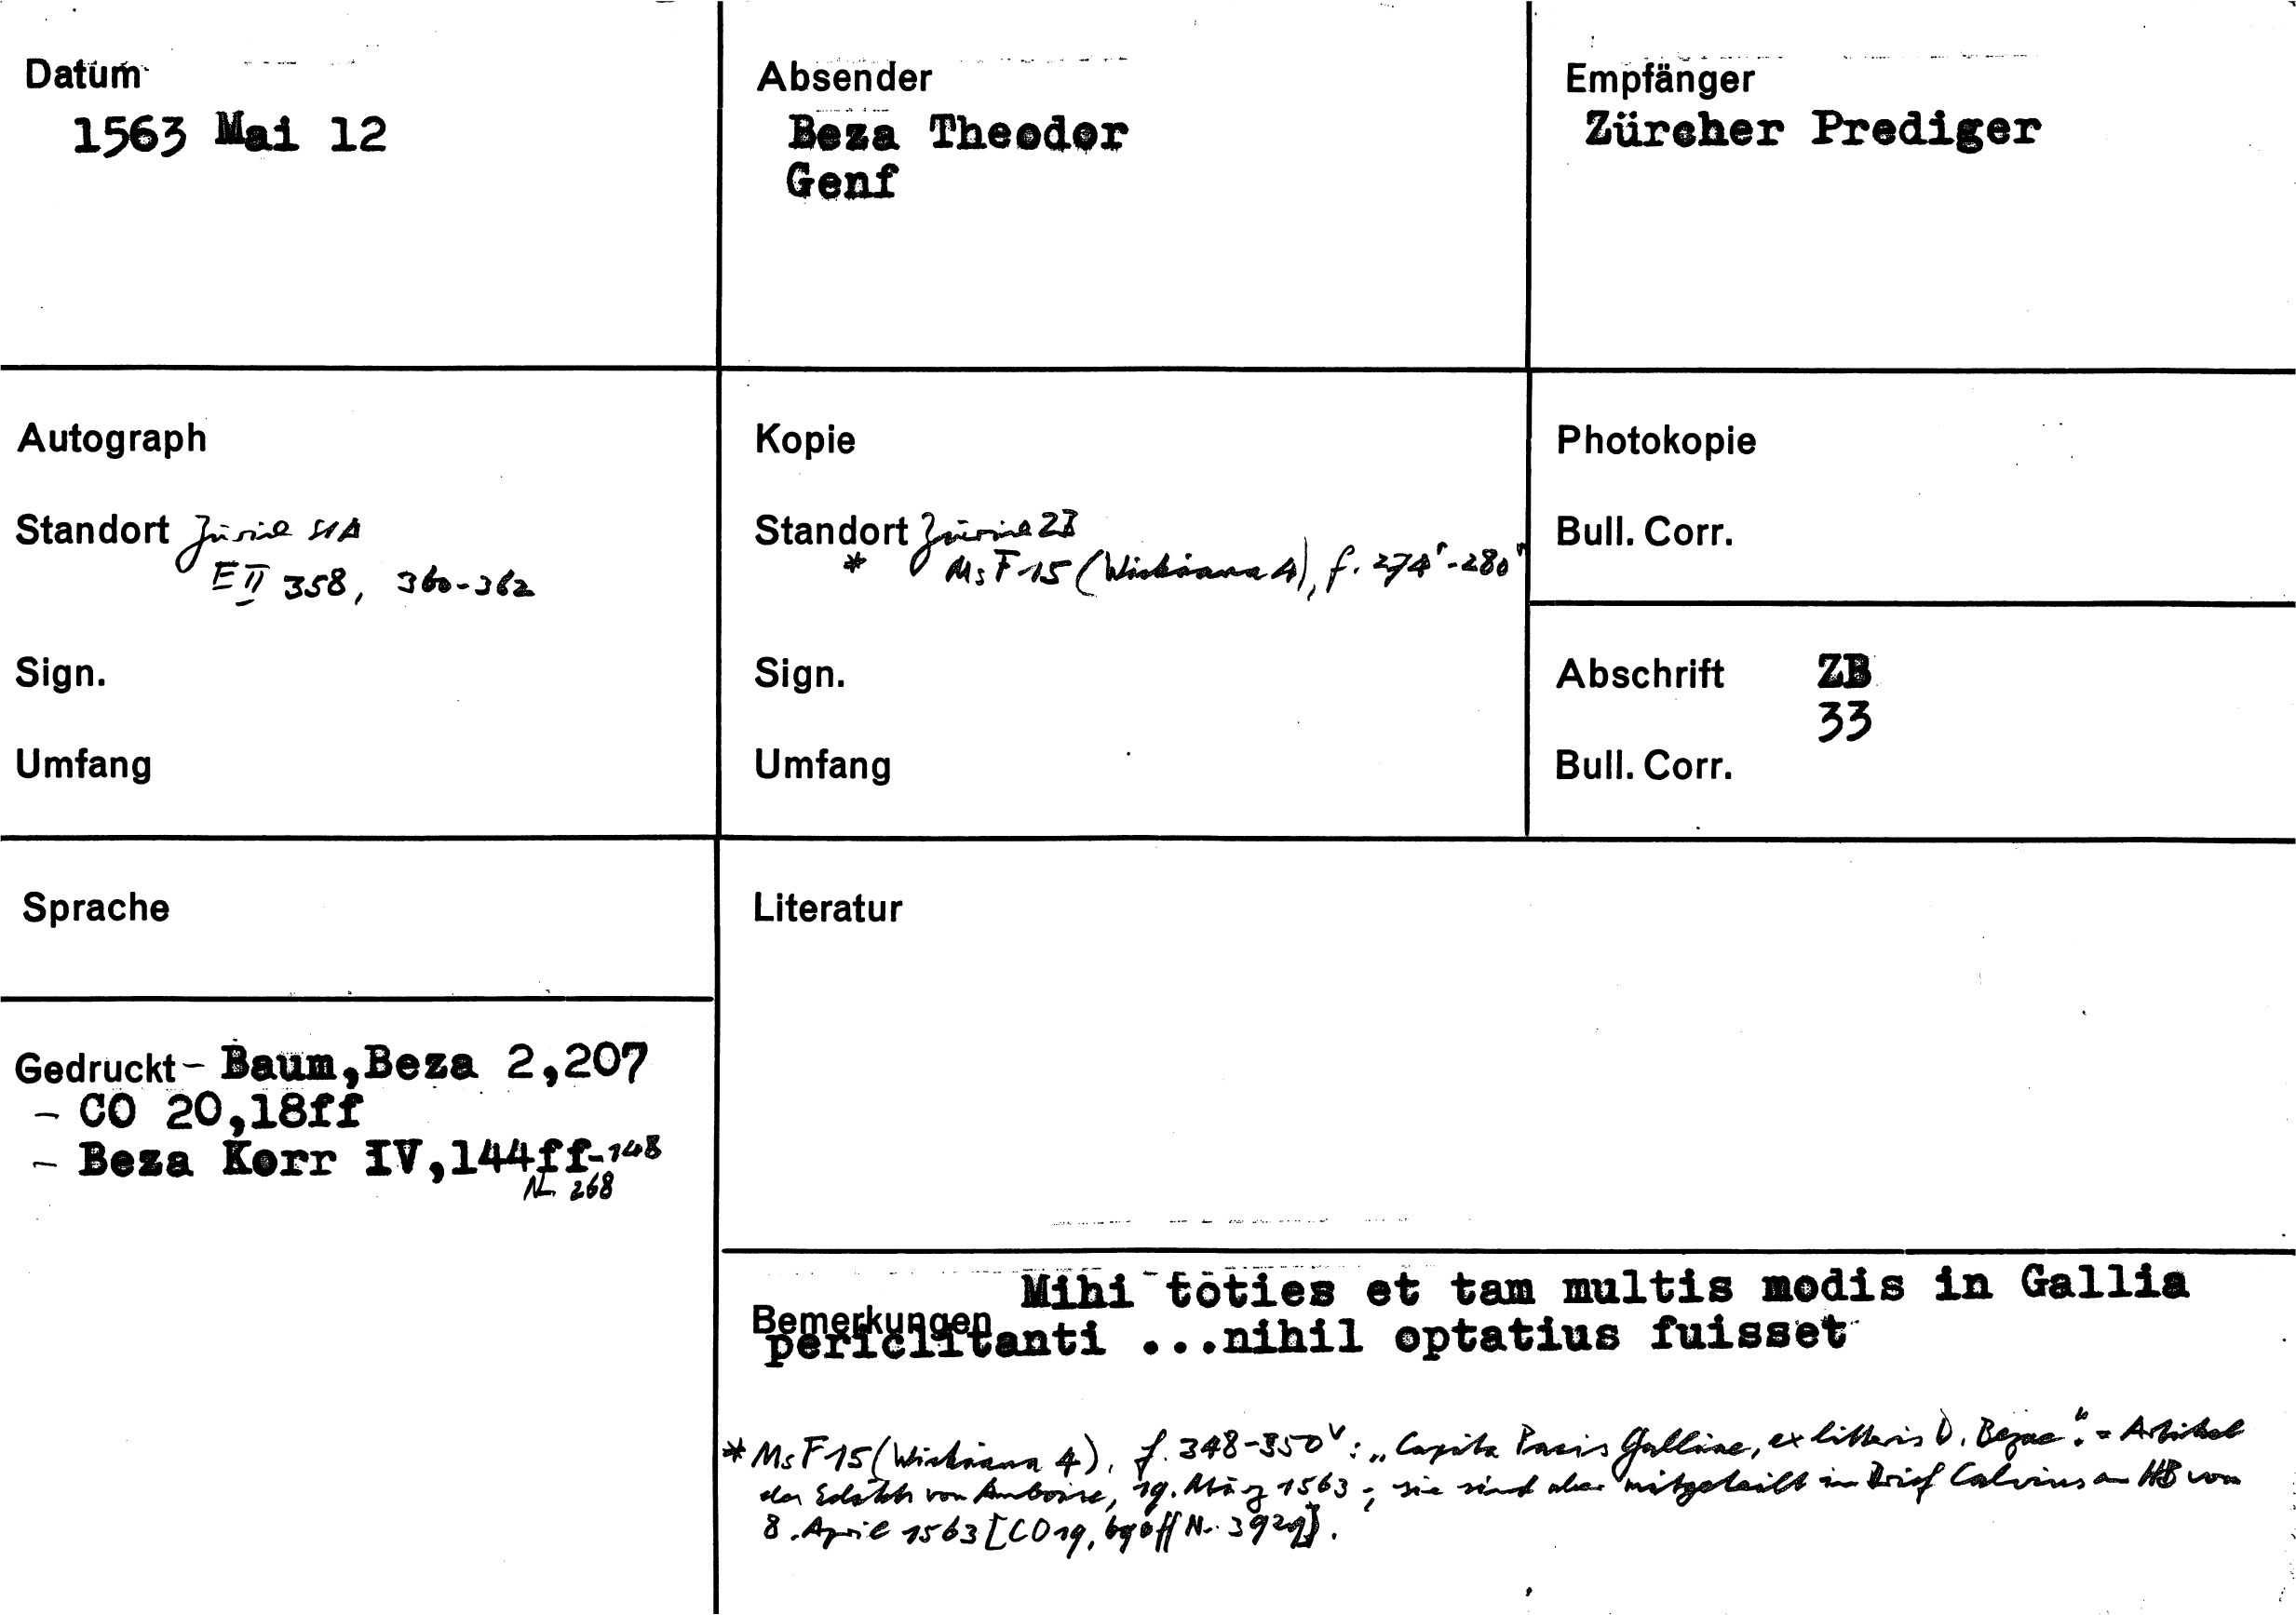 Datum
1563 Mai 12
Absender
Beza Theodor
Genf
Empfänger
Zürcher Prediger
Autograph
Standort Zürich StA
E II 358, 360-362
Sign.
Umfang
Kopie
Standort Zürich ZB
* Ms F 15 (Wickiana 4), f. 274r-280v
Sign.
Umfang
Photokopie
Bull. Corr.
Abschrift ZB
33
Bull. Corr.
Sprache
Gedruckt - Baum,Beza 2,207
- CO 20,18ff
- Beza Korr IV,144ff-148
Nr. 268
Literatur
Bemerkungen Mihi toties et tam multis modis in Gallia
periclitanti ...nihil optatius fuisset
* Ms F 15 (Wickiana 4), f. 348-350v: „Capita Pacis Gallicae, ex litteris D. Bezae". = Artikel
des Edikts von Amboise, 19. März 1563; sie sind aber mitgeteilt im Brief Calvins an HB vom
8. April 1563 [CO 19, 690ff Nr. 3929].